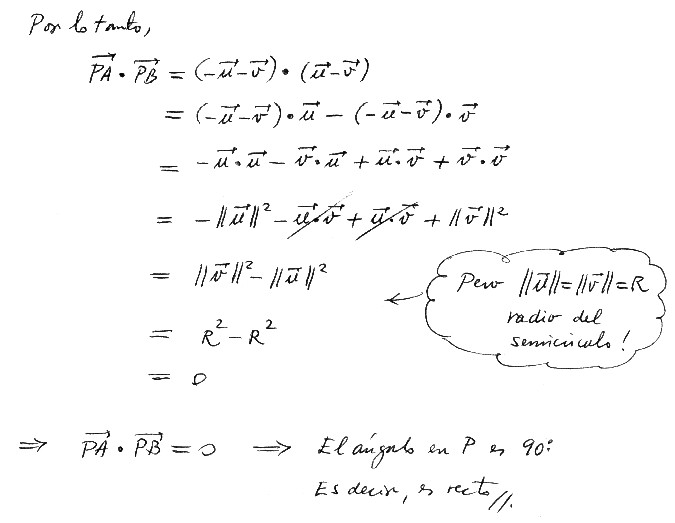 Por lo tanto,
$\overrightarrow{PA} \cdot \overrightarrow{PB} = (-\vec{u}-\vec{v}) \cdot (\vec{u}-\vec{v})$
$= (-\vec{u}-\vec{v}) \cdot \vec{u} - (-\vec{u}-\vec{v}) \cdot \vec{v}$
$= -\vec{u} \cdot \vec{u} - \vec{v} \cdot \vec{u} + \vec{u} \cdot \vec{v} + \vec{v} \cdot \vec{v}$
$= -\|\vec{u}\|^2 - \cancel{\vec{u} \cdot \vec{v}} + \cancel{\vec{u} \cdot \vec{v}} + \|\vec{v}\|^2$
$= \|\vec{v}\|^2 - \|\vec{u}\|^2$
Pero $\|\vec{u}\| = \|\vec{v}\| = R$
radio del
semicírculo!
$= R^2 - R^2$
$= 0$
$\Rightarrow \overrightarrow{PA} \cdot \overrightarrow{PB} = 0 \Rightarrow$ El ángulo en P es 90°.
Es decir, es recto //.